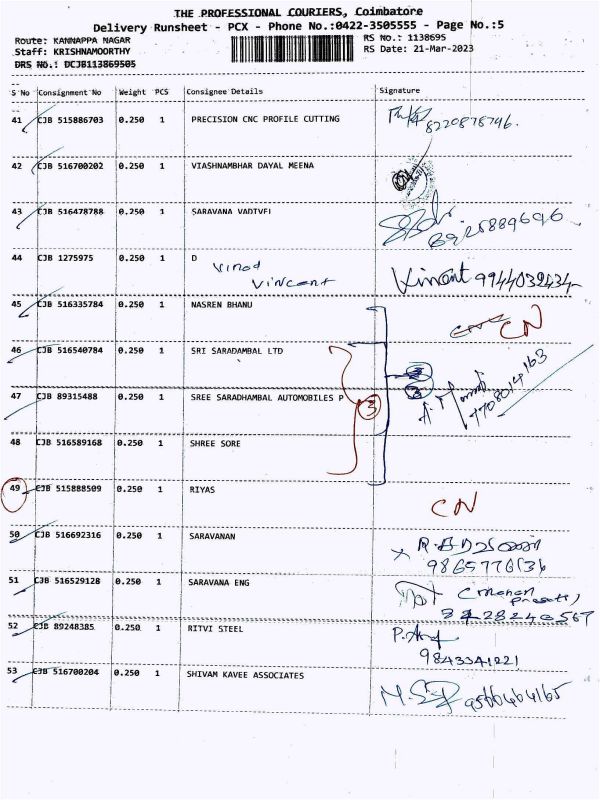 THE PROFESSIONAL COURIERS, Coimbatore
Delivery Runsheet - PCX - Phone No.:0422-3505555 - Page No.:5
Route: KANNAPPA NAGAR RS No.: 1138695
Staff: KRISHNAMOORTHY RS Date: 21-Mar-2023
DRS No.: DCJB113869505
S No Consignment No Weight PCS Consignee Details Signature
41 CJB 515886703 0.250 1 PRECISION CNC PROFILE CUTTING
8220878796.
42 CJB 516700202 0.250 1 VIASHNAMBHAR DAYAL MEENA
43 CJB 516478788 0.250 1 SARAVANA VADIVEL
44 CJB 1275975 0.250 1 D Vincent 9944032434
Vinod
Vincent
45 CJB 516335784 0.250 1 NASREN BHANU CN CN
46 CJB 516540784 0.250 1 SRI SARADAMBAL LTD
47 CJB 89315488 0.250 1 SREE SARADHAMBAL AUTOMOBILES P 3
7708014163
48 CJB 516589168 0.250 1 SHREE SORE
49 CJB 515888509 0.250 1 RIYAS CN
50 CJB 516692316 0.250 1 SARAVANAN
51 CJB 516529128 0.250 1 SARAVANA ENG
52 CJB 89248385 0.250 1 RITVI STEEL
9843341221
53 CJB 516700204 0.250 1 SHIVAM KAVEE ASSOCIATES
9566464165